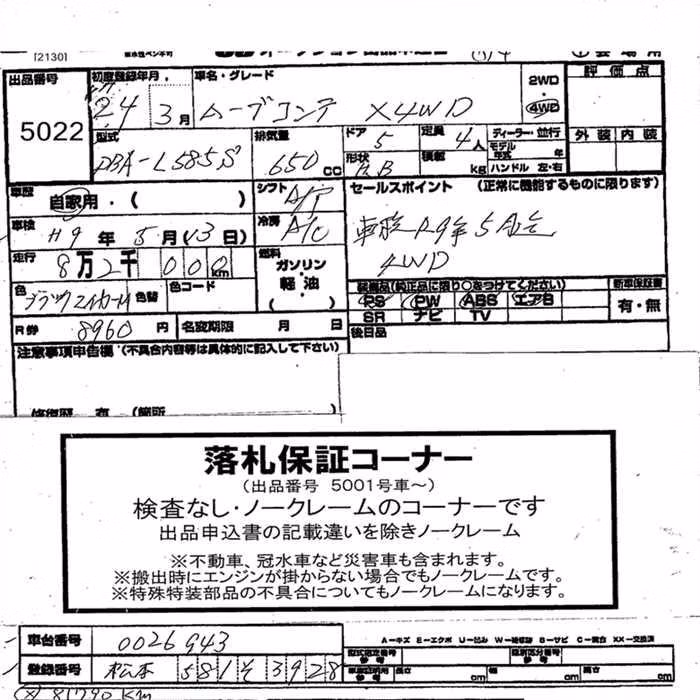 [2130]
出品番号 初度登録年月 車名・グレード 2WD 評価点
5022 24 3月 ムーブコンテ X4WD 4WD
型式 排気量 ドア 5 定員 4人 ディーラー・並行 外装 内装
DBA-L585S 650cc 形状 HB 積載 kg モデル年式 年 ハンドル 左・右
車歴 自家用・( ) シフト A/T セールスポイント (正常に機能するものに限ります)
車検 H9年5月(13日) 冷房 A/C 車検R9年5月迄
走行 8万2千000km 燃料 ガソリン・軽油 ( ) 4WD
色 色替 色コード 装備品(純正品に限り○をつけてください) 新車保証書
PS PW ABS エアB 有・無
SR ナビ TV
R券 8960円 名変期限 月 日 後日品
注意事項申告欄(不具合内容等は具体的に記入して下さい)
修復歴 有 (箇所
落札保証コーナー
(出品番号 5001号車~)
検査なし・ノークレームのコーナーです
出品申込書の記載違いを除きノークレーム
※不動車、冠水車など災害車も含まれます。
※搬出時にエンジンが掛からない場合でもノークレームです。
※特殊特装部品の不具合についてもノークレームになります。
車台番号 0026943 A-キズ E-エクボ U-凹み W-補修跡 S-サビ C-腐食 XX-交換済
登録番号 松本 581 そ 3928 型式指定番号 参考 類別区分番号 参考
車庫証明用 参考 長さ cm 幅 cm 高さ cm
81790 Km